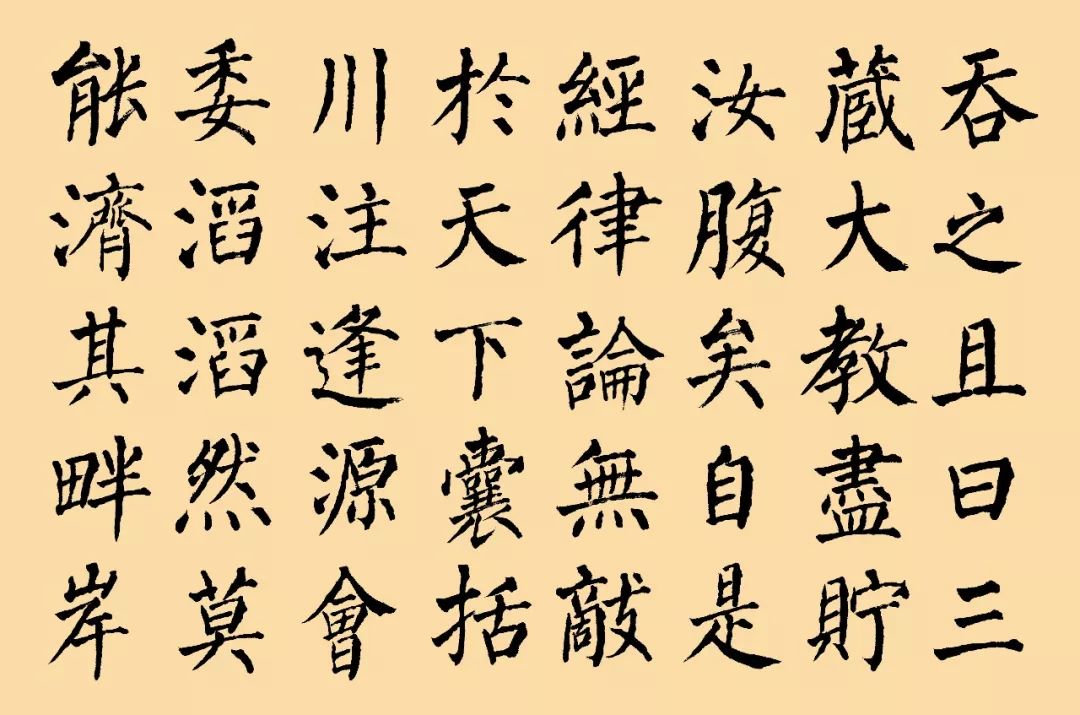 吞之且曰三
蔵大教盡貯
汝腹矣自是
經律論無敵
於天下囊括
川注逢源會
委滔滔然莫
能濟其畔岸